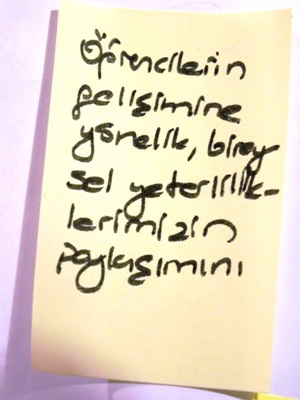 Öğrencilerin
gelişimine
yönelik, birey
sel yeterlilik-
lerimizin
paylaşımını